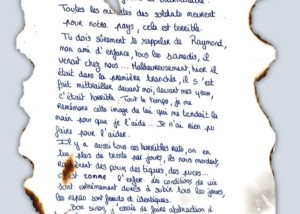 Toutes les minutes des soldats meurent
pour notre pays, cela est terrible.
Tu dois sûrement te rappeler de Raymond,
mon ami d'enfance, tous les samedis, il
venait chez nous. Malheureusement, hier il
était dans la première tranchée, il s'est
fait mitrailler devant moi, devant mes yeux,
c'était horrible. Tout le temps, je me
remémore cette image de lui qui me tendait la
main pour que je l'aide... Je n'ai rien pu
faire pour l'aider.
Il y a aussi tous ces horribles rats, on en
tue plus de trente par jours, ils nous mordent,
des poux, des tiques, des puces...
est comme l'enfer, les conditions de vie
sont extrêmement dures à subir tous les jours,
les repas sont froids et identiques.
Bon sinon, j'essaie de faire abstraction à